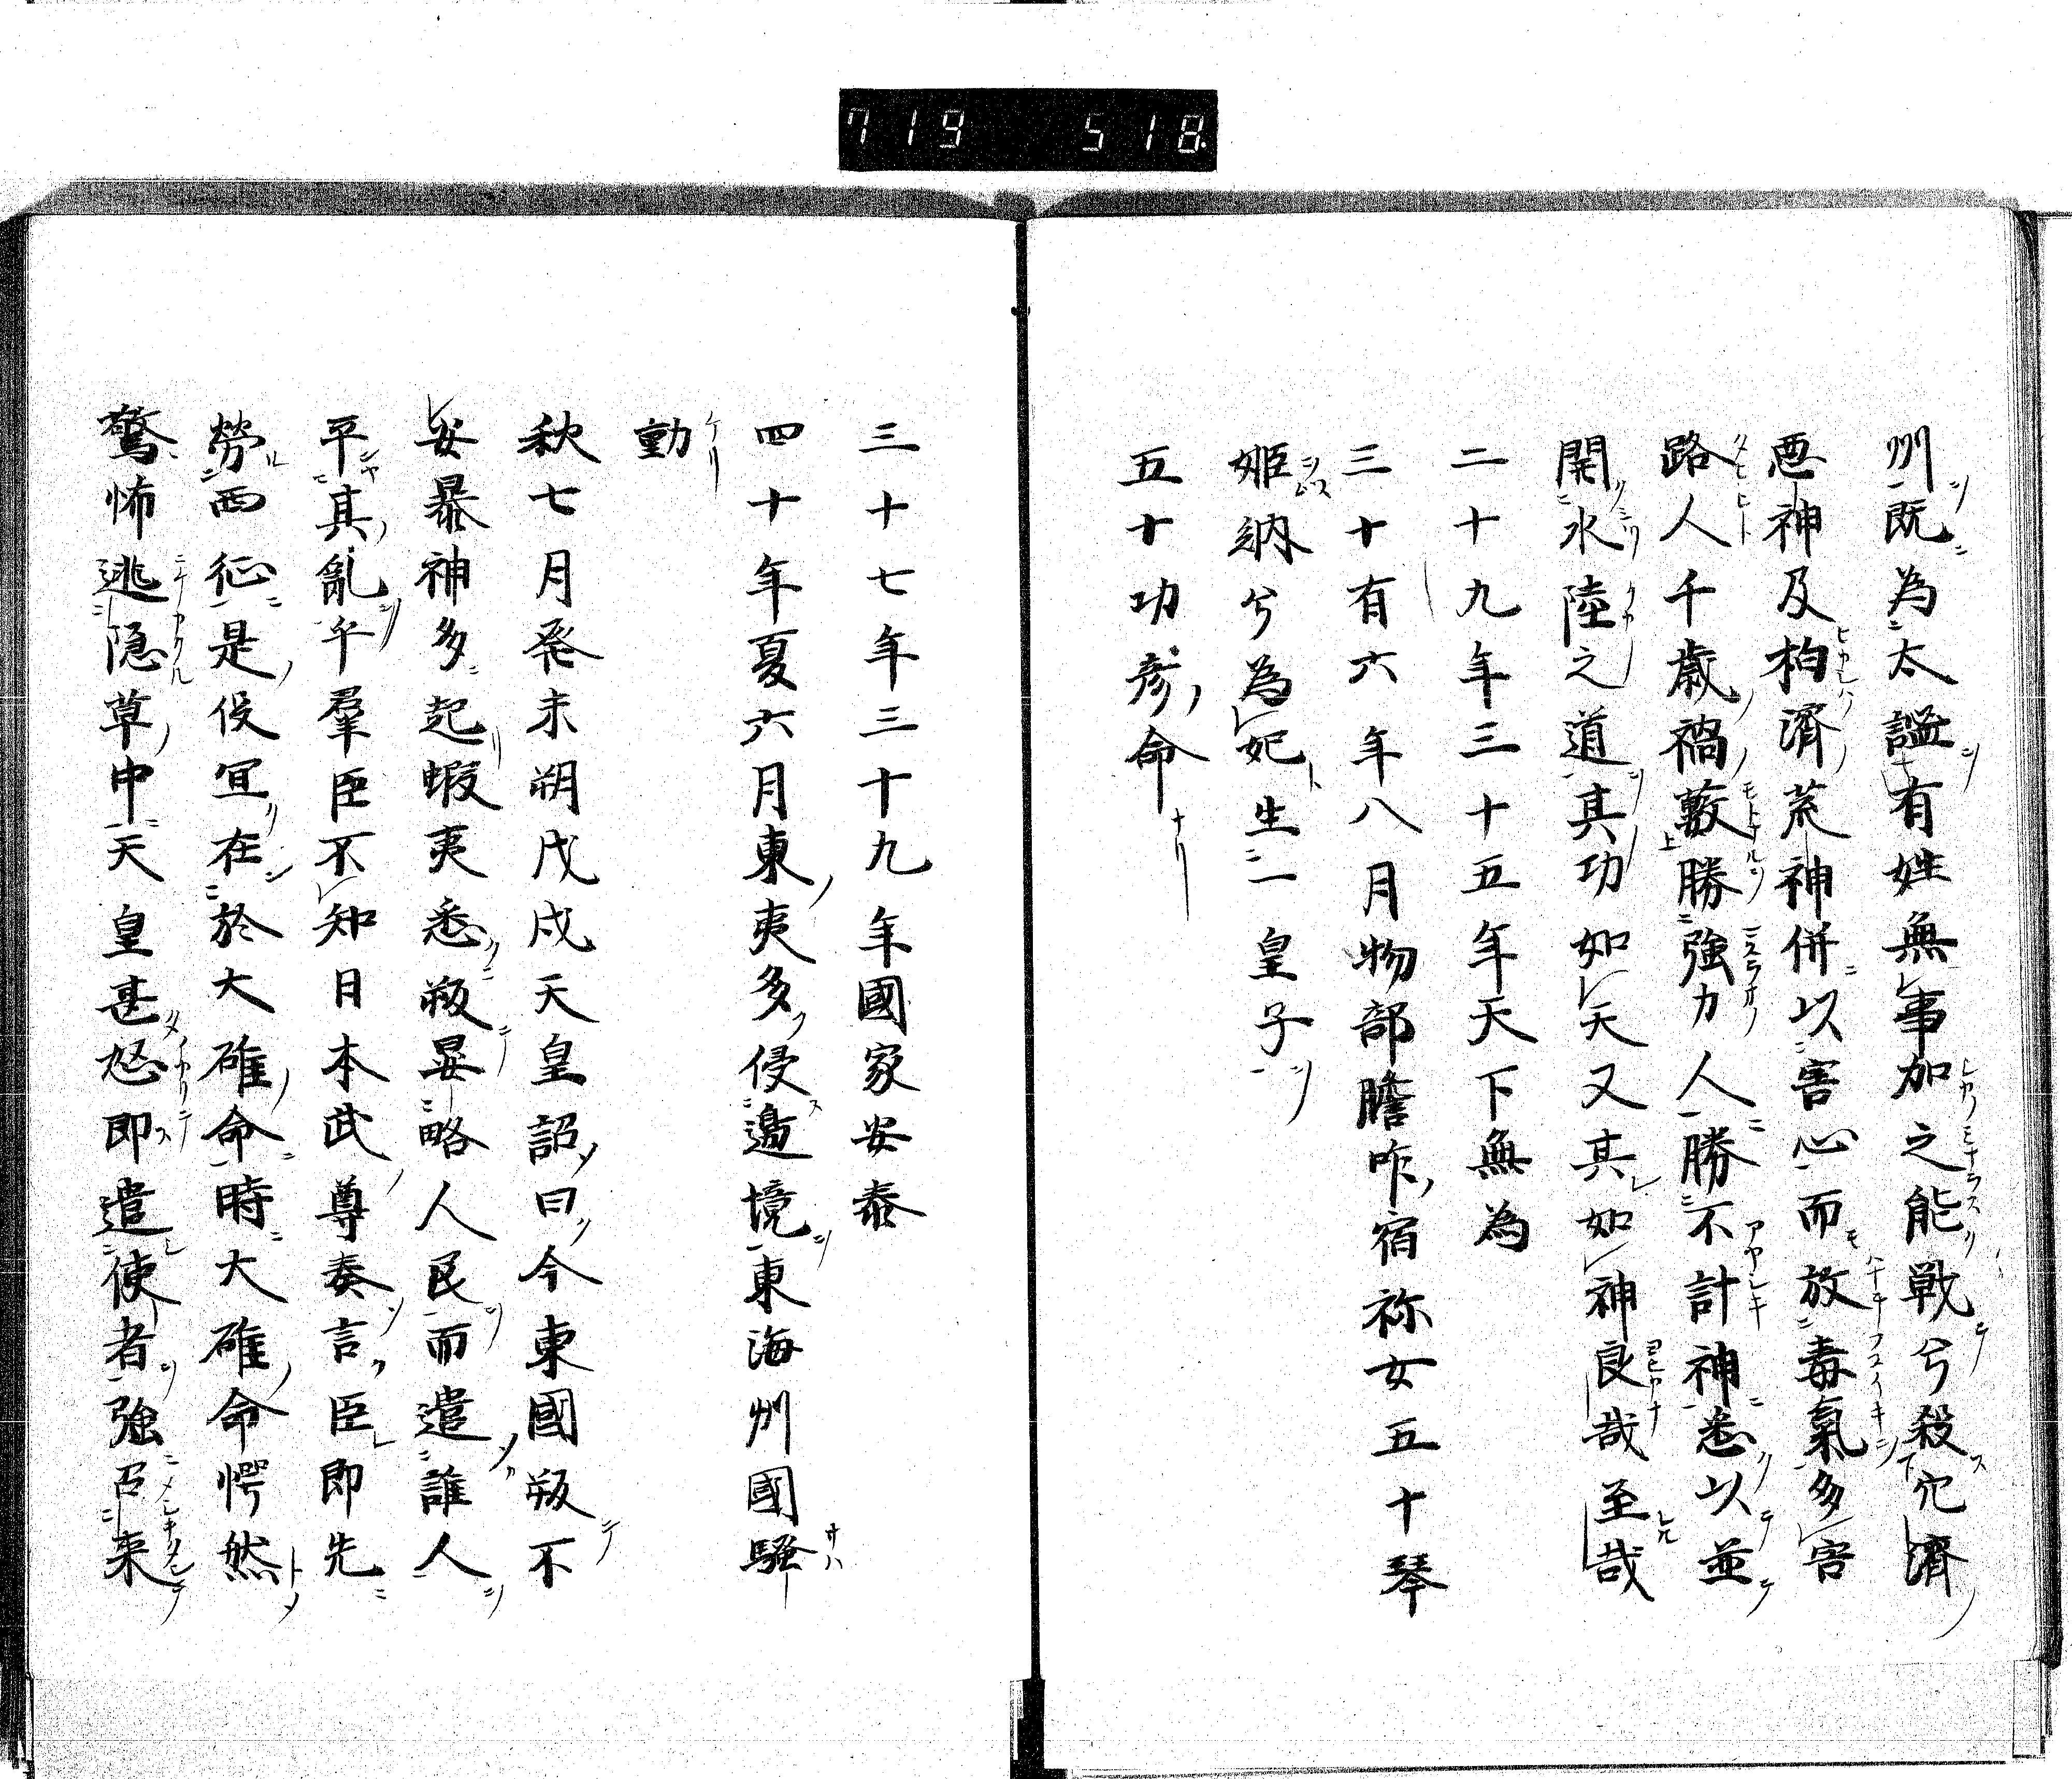 719 518.
州既為太謐有姓無事加之能戦兮殺穴済
悪神及柏濟荒神併以害心而放毒氣多害
路人千歳禍藪勝強力人勝不計神悉以並
開水陸之道其功如天又其如神良哉至哉
二十九年三十五年天下無為
三十有六年八月物部膽咋宿祢女五十琴
姫納兮為妃生一皇子
五十功彦命
三十七年三十九年國家安泰
四十年夏六月東夷多侵邉境東海州國騒
動
秋七月癸未朔戊戌天皇詔曰今東國叛不
安暴神多起蝦夷悉叛晏略人民而遣誰人
平其亂乎羣臣不知日本武尊奏言臣即先
勞西征是役宜在於大碓命時大碓命愕然
驚怖逃隠草中天皇甚怒即遣使者強召来